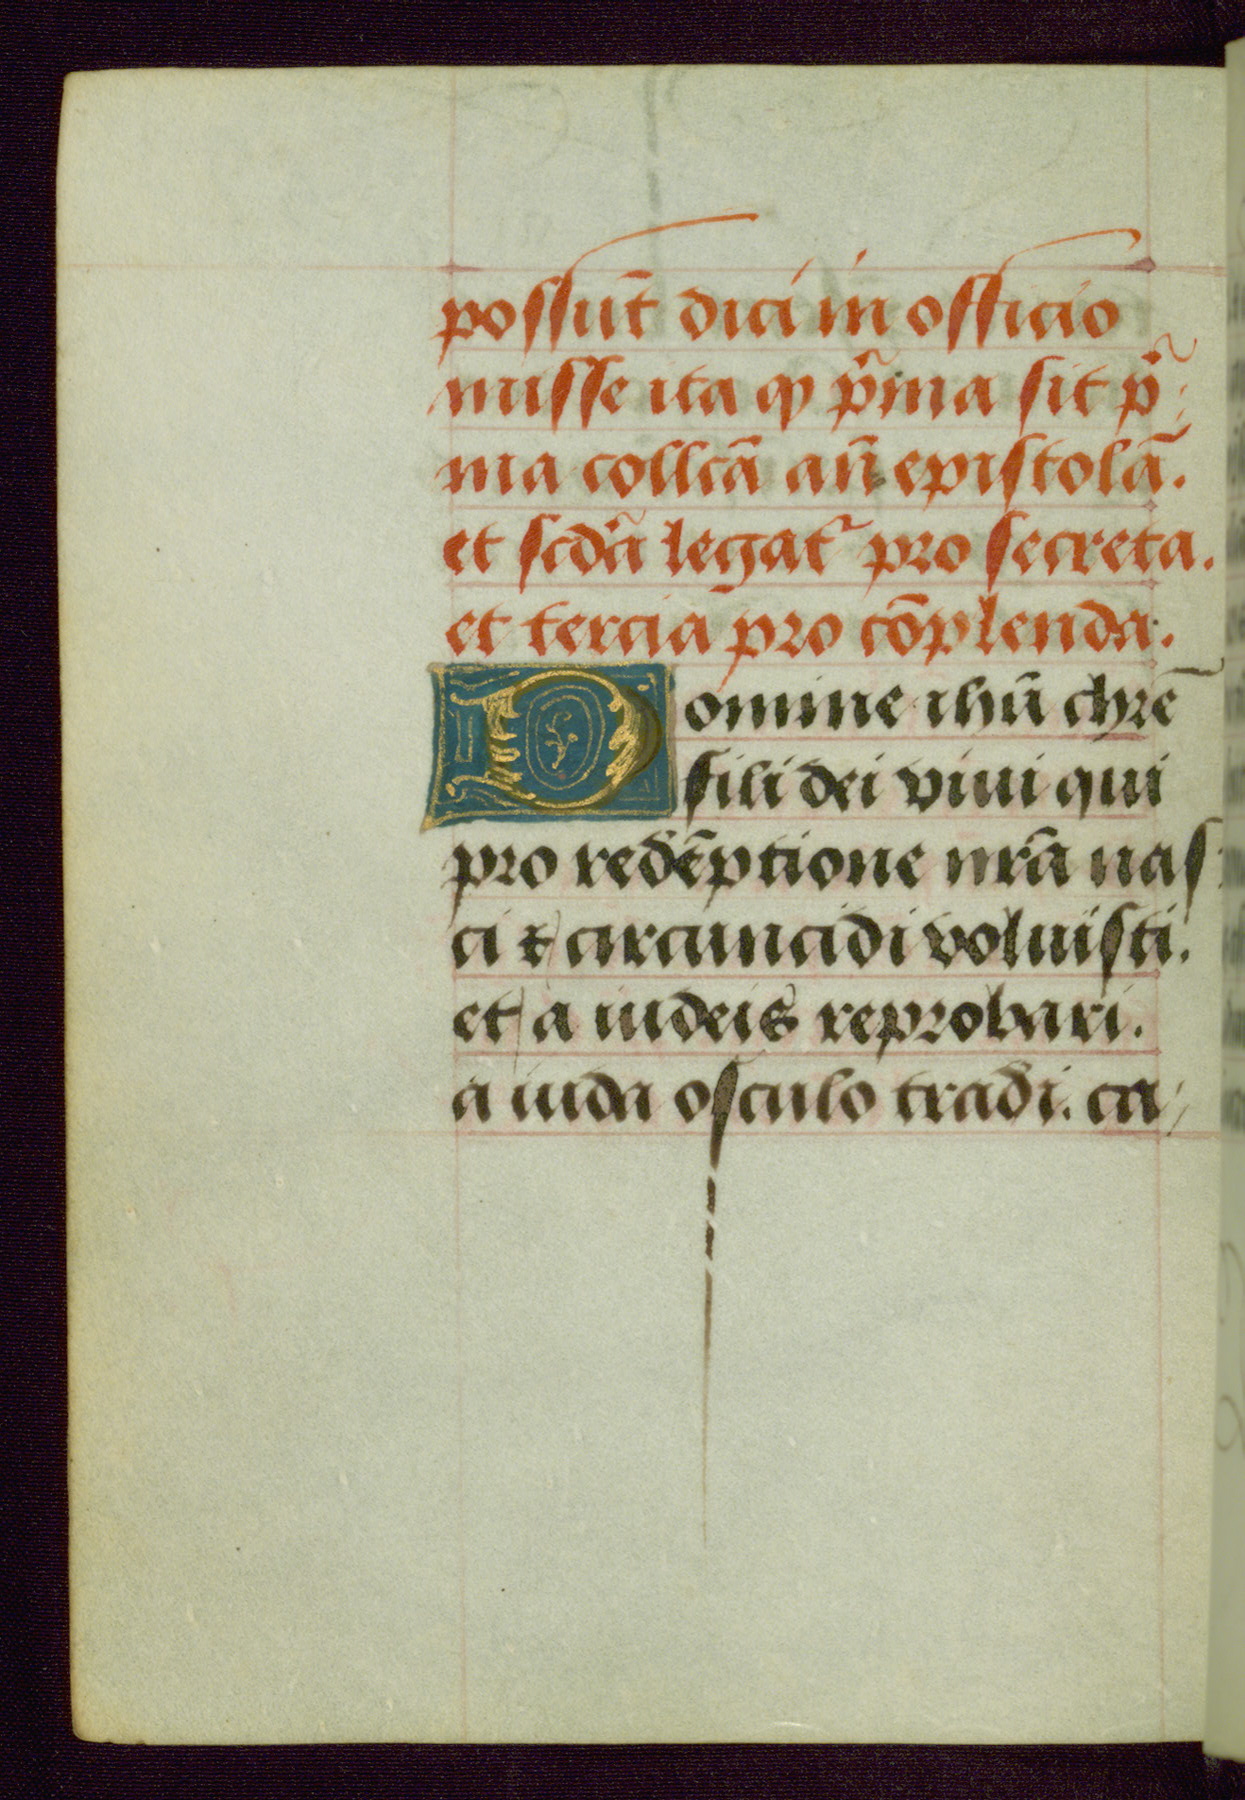 possūt dici in officio
misse ita ꝙ p̃ma sit p̃:
ma collcā añ epistolā.
et scd̃a legat᷑ pro secreta.
et tercia pro cōplenda.
Domine ihũ chrē
fili dei viui qui
pro redēptione nrā nas:
ci ⁊ circuncidi voluisti.
et a iudeis reprobari.
a iuda osculo tradi. ca/